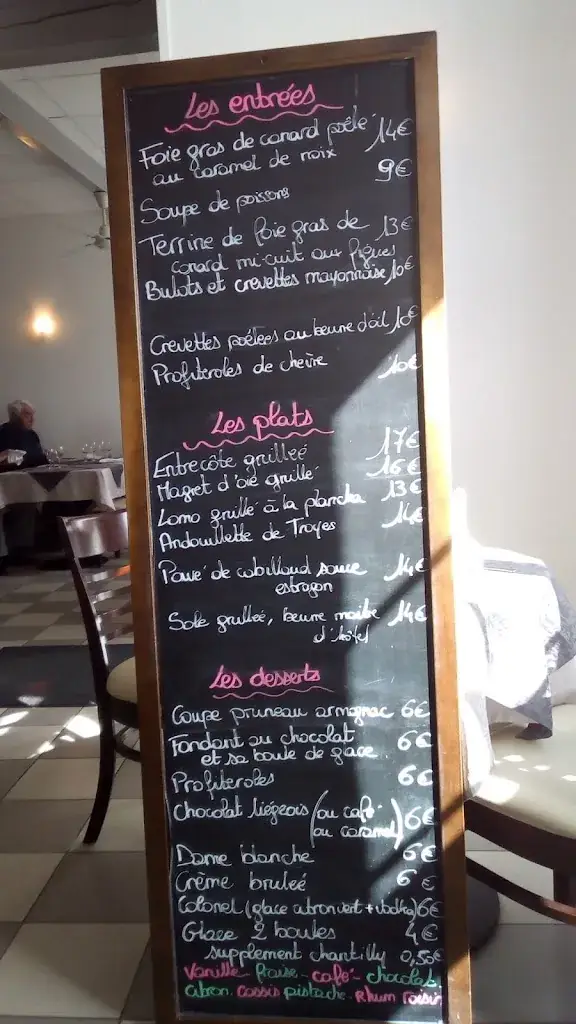 Les entrées
Foie gras de canard poêlé 14€
au caramel de noix
Soupe de poissons 9€
Terrine de foie gras de 13€
canard mi-cuit aux figues
Bulots et crevettes mayonnaise 10€
Crevettes poêlées au beurre d'ail 10€
Profiteroles de chèvre 10€
Les plats
Entrecôte grillée 17€
Magret d'oie grillé 16€
Lomo grillé à la plancha 13€
Andouillette de Troyes 14€
Pavé de cabillaud sauce 14€
estragon
Sole grillée, beurre maitre 14€
d'hôtel
Les desserts
Coupe pruneau armagnac 6€
Fondant au chocolat 6€
et sa boule de glace
Profiteroles 6€
Chocolat liégeois (ou café 6€
ou caramel)
Dame blanche 6€
Crème brulée 6€
Colonel (glace citron vert + vodka) 6€
Glace 2 boules 4€
supplement chantilly 0,50€
Vanille - fraise - café - chocolat
citron - cassis pistache - Rhum raisin